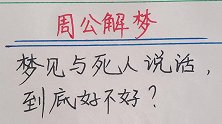 周公解梦
梦见与死人说话，
到底好不好？